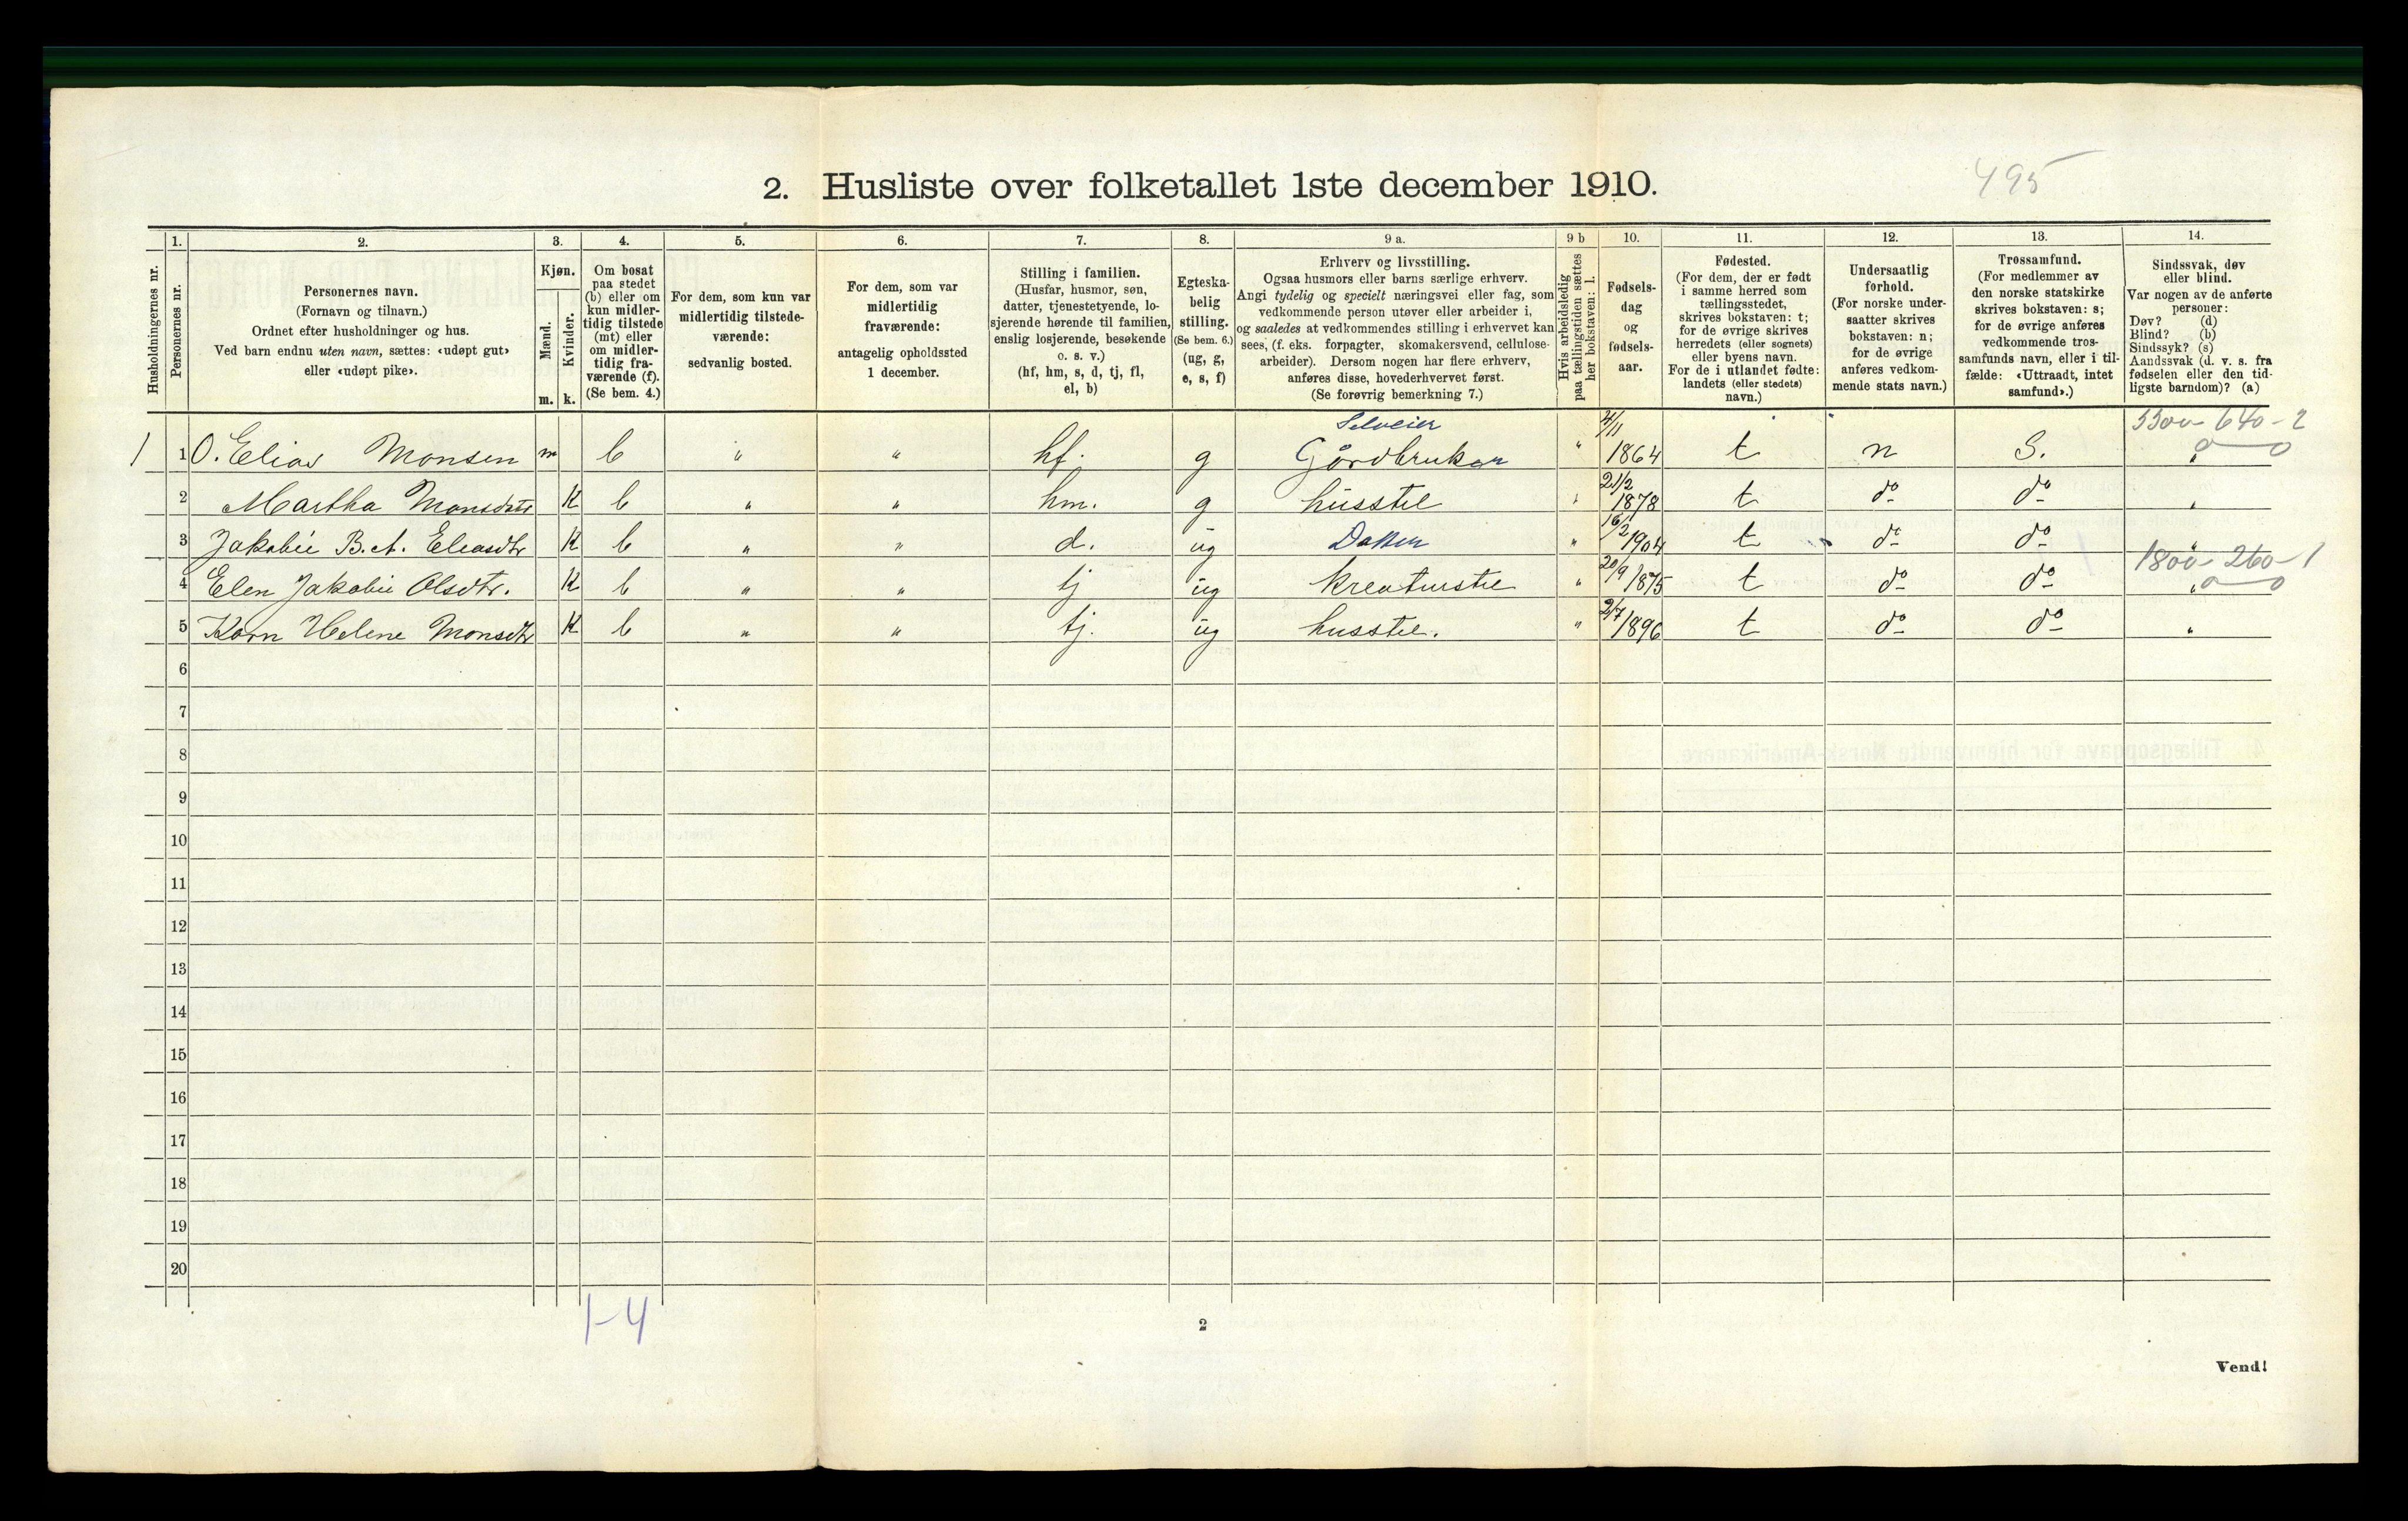 2. Husliste over folketallet 1ste december 1910.
495
Husholdningernes nr.
1. Personernes nr.
2. Personernes navn.
(Fornavn og tilnavn.)
Ordnet efter husholdninger og hus.
Ved barn endnu uten navn, sættes: «udøpt gut»
eller «udøpt pike».
3. Kjøn.
Mænd. m.
Kvinder. k.
4. Om bosat
paa stedet
(b) eller om
kun midler-
tidig tilstede
(mt) eller
om midler-
tidig fra-
værende (f).
(Se bem. 4.)
5. For dem, som kun var
midlertidig tilstede-
værende:
sedvanlig bosted.
6. For dem, som var
midlertidig
fraværende:
antagelig opholdssted
1 december.
7. Stilling i familien.
(Husfar, husmor, søn,
datter, tjenestetyende, lo-
sjerende hørende til familien,
enslig losjerende, besøkende
o. s. v.)
(hf, hm, s, d, tj, fl,
el, b)
8. Egteska-
belig
stilling.
(Se bem. 6.)
(ug, g,
e, s, f)
9 a. Erhverv og livsstilling.
Ogsaa husmors eller barns særlige erhverv.
Angi tydelig og specielt næringsvei eller fag, som
vedkommende person utøver eller arbeider i,
og saaledes at vedkommendes stilling i erhvervet kan
sees, (f. eks. forpagter, skomakersvend, cellulose-
arbeider). Dersom nogen har flere erhverv,
anføres disse, hovederhvervet først.
(Se forøvrig bemerkning 7.)
9 b Hvis arbeidsledig
paa tællingstiden sættes
her bokstaven: l.
10. Fødsels-
dag
og
fødsels-
aar.
11. Fødested.
(For dem, der er født
i samme herred som
tællingsstedet,
skrives bokstaven: t;
for de øvrige skrives
herredets (eller sognets)
eller byens navn.
For de i utlandet fødte:
landets (eller stedets)
navn.)
12. Undersaatlig
forhold.
(For norske under-
saatter skrives
bokstaven: n;
for de øvrige
anføres vedkom-
mende stats navn.)
13. Trossamfund.
(For medlemmer av
den norske statskirke
skrives bokstaven: s;
for de øvrige anføres
vedkommende tros-
samfunds navn, eller i til-
fælde: «Uttraadt, intet
samfund».)
14. Sindssvak, døv
eller blind.
Var nogen av de anførte
personer:
Døv? (d)
Blind? (b)
Sindssyk? (s)
Aandssvak (d. v. s. fra
fødselen eller den tid-
ligste barndom)? (a)
Selveier 3300-640-2
1 1 O. Elias Monsen m b " " hf. g Gårdbruker " 4/11 1864 t n S. "
2 Martha Monsdtr K b " " hm. g husstel " 21/2 1878 t do do "
3 Jakobie B. A. Eliasdtr K b " " d. ug Datter " 16/2 1904 t do do "
1800-260-1
4 Elen Jakobie Olsdtr. K b " " tj ug kreaturstel " 20/9 1875 t do do "
5 Karn Helene Monsdtr K b " " tj. ug husstel. " 2/7 1896 t do do "
6
7
8
9
10
11
12
13
14
15
16
17
18
19
20
1-4
2
Vend!